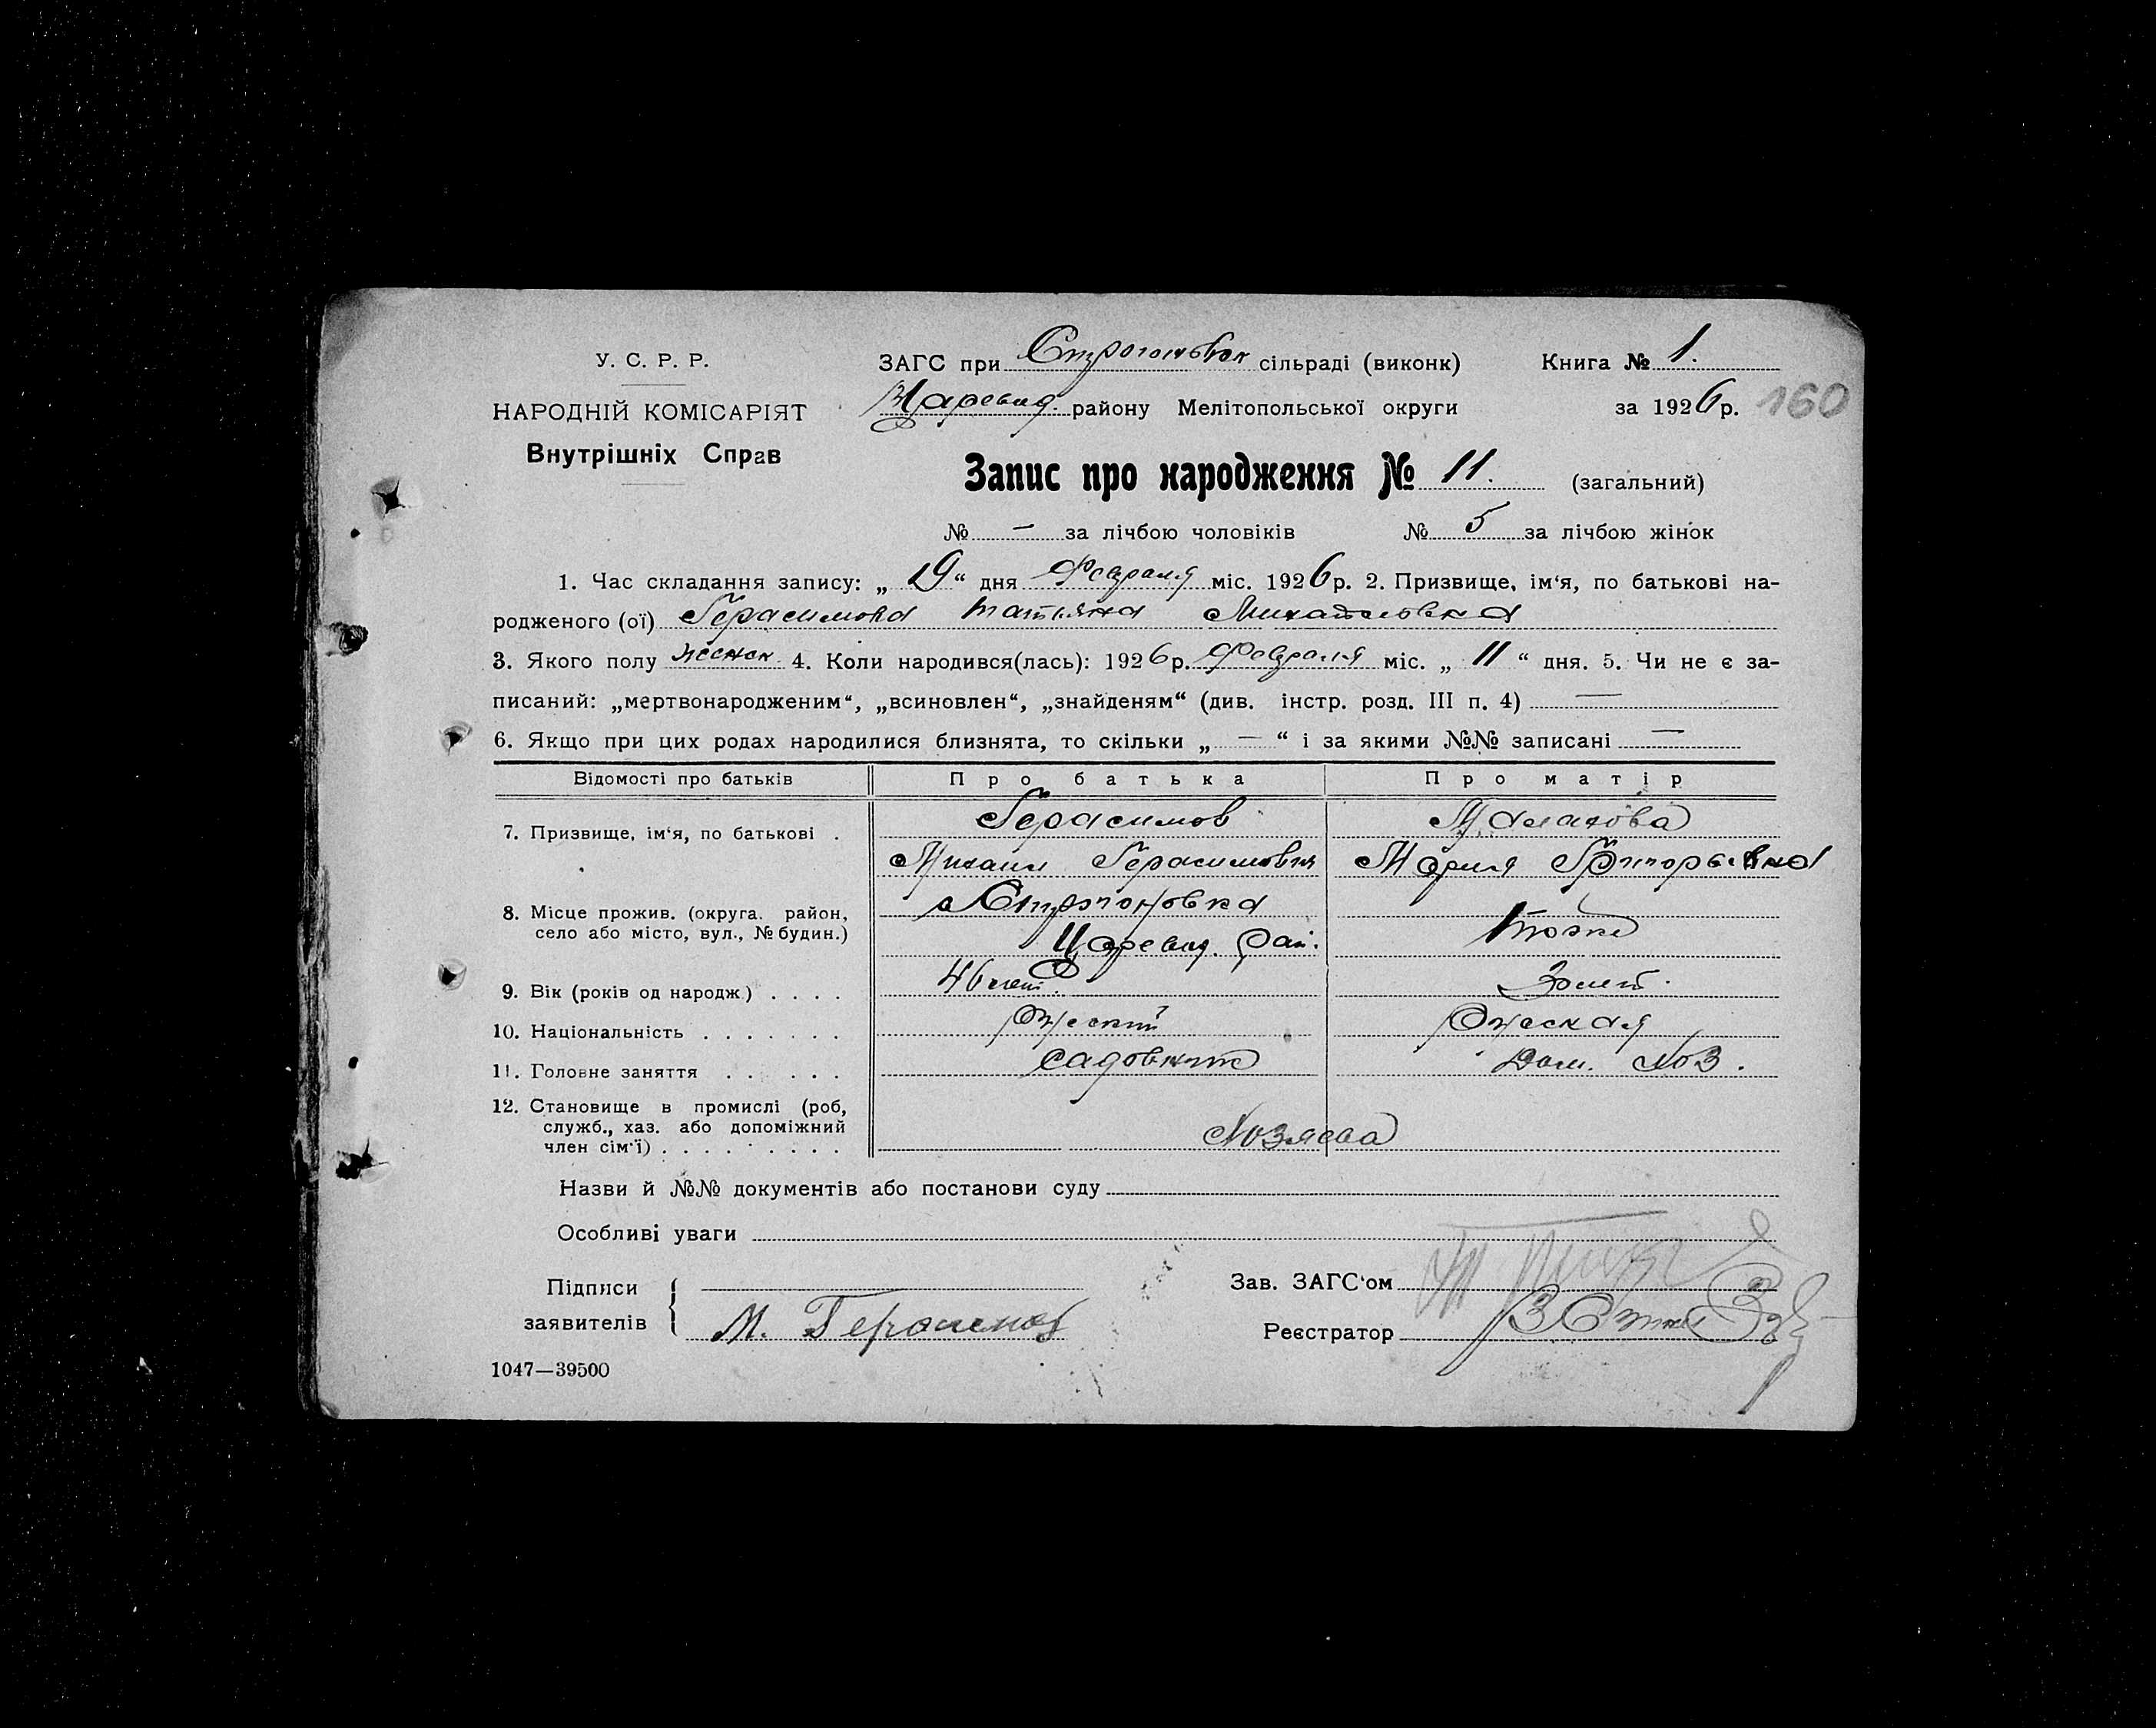 У. С. Р. Р.
НАРОДНІЙ КОМІСАРІЯТ
Внутрішніх Справ
ЗАГС при Строгоновск сільраді (виконк) Книга № 1.
Царевид. району Мелітопольської округи за 1926 р. 160
Запис про народження № 11. (загальний)
№ — за лічбою чоловіків № 5 за лічбою жінок
1. Час складання запису: „ 19 “ дня Февраля міс. 1926 р. 2. Призвище, ім‘я, по батькові на-
родженого (ої) Герасимова Татьяна Михайловна
3. Якого полу женск. 4. Коли народився(лась): 1926 р. Февраля міс. „ 11 “ дня. 5. Чи не є за-
писаний: „мертвонародженим“, „всиновлен“, „знайденям“ (див. інстр. розд. III п. 4) —
6. Якщо при цих родах народилися близнята, то скільки „ — “ і за якими №№ записані —
Відомості про батьків Про батька Про матір
7. Призвище, ім‘я, по батькові . Герасимов Малахова
Михаил Герасимович Мария Григорьевна
8. Місце прожив. (округа, район, село або місто, вул., № будин.) Строгоновка
Царевид. рай. тоже
9. Вік (років од народж.) . . . . 46 лет.
10. Національність . . . . . . . Русский Русская
11. Головне заняття . . . . . . садовник Дом. хоз.
12. Становище в промислі (роб,
служб., хаз. або допоміжний
член сім‘ї) . . . . . . . . Хозяева
Назви й №№ документів або постанови суду
Особливі уваги
Підписи
заявителів М. Герасимов
Зав. ЗАГС‘ом
Реєстратор
1047—39500